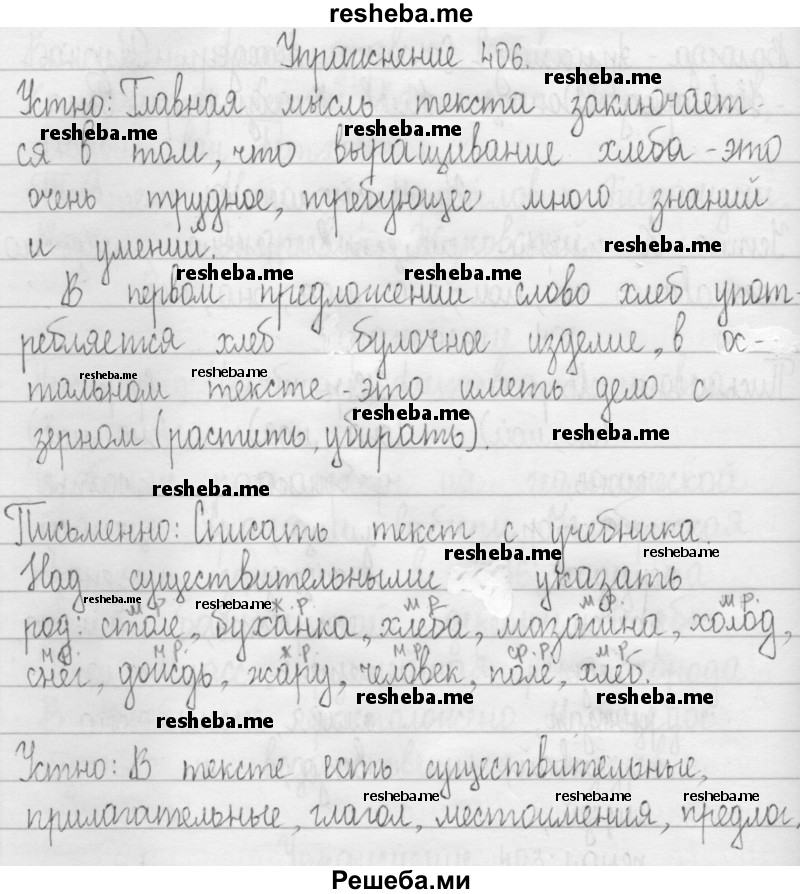 resheba.me
Упражнение 406.
resheba.me
Устно: Главная мысль текста заключает-
resheba.me resheba.me
ся в том, что выращивание хлеба - это
очень трудное, требующее много знаний
и умений.
resheba.me
resheba.me resheba.me
В первом предложении слово хлеб упот-
ребляется хлеб булочное изделие, в ос-
resheba.me resheba.me
тальном тексте - это иметь дело с
resheba.me
зерном (растить, убирать).
resheba.me
resheba.me
Письменно: Списать текст с учебника.
resheba.me resheba.me
Над существительными указать
resheba.me resheba.me
м.р. ж.р. м.р. м.р. м.р.
род: столе, буханка, хлеба, магазина, холод,
м.р. м.р. ж.р. м.р. ср.р. м.р.
снег, дождь, жару, человек, поле, хлеб.
resheba.me resheba.me
resheba.me
Устно: В тексте есть существительные,
resheba.me resheba.me resheba.me
прилагательные, глагол, местоимения, предлог,
Решеба.ми